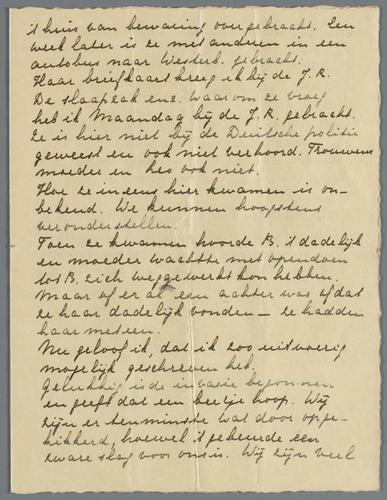 't huis van bewaring overgebracht. Een
week later is ze met anderen in een
autobus naar Westerb. gebracht.
Haar briefkaart kreeg ik bij de J.R.
De slaapzak enz. waarom ze vroeg
heb ik Maandag bij de J.R. gebracht.
Ze is hier niet bij de Deutsche politie
geweest en ook niet verhoord. Trouwens
moeder en Leo ook niet.
Hoe ze ineens hier kwamen is on-
bekend. We kunnen hoogstens
veronderstellen.
Toen ze kwamen hoorde B. 't dadelijk
en moeder wachtte met opendoen
tot B. zich weggewerkt kon hebben.
Maar of er al een achter was of dat
ze haar dadelijk vonden – ze hadden
haar meteen.
Nu geloof ik, dat ik zoo uitvoerig
mogelijk geschreven heb.
Gelukkig is de invasie begonnen
en geeft dat een beetje hoop. Wij
zijn er tenminste wat door opge-
kikkerd, hoewel 't gebeurde een
zware slag voor ons is. Wij zijn veel